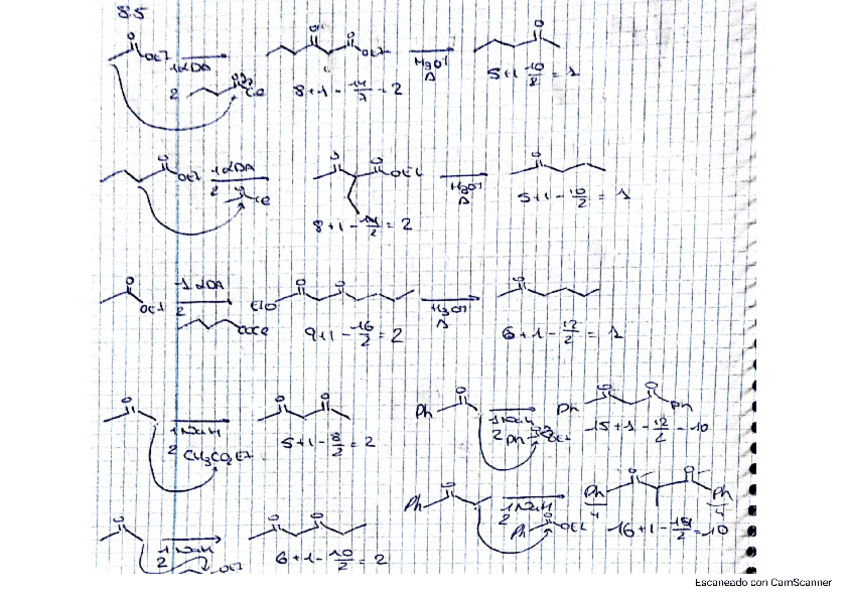 85
O
OEt 1 LDA
2 Cl
O O OEt
H3O+
Δ
O
8+1-14/2=2
5+1-10/2=1
O OEt 1 LDA
2 Cl
O O OEt
H3O+
Δ
O
8+1-14/2=2
5+1-10/2=1
O OEt
1 LDA
2 COCl
EtO O O
H3O+
Δ
O
9+1-16/2=2
6+1-12/2=1
O
1 NaH
2 CH3CO2Et
O O
5+1-8/2=2
Ph O
1 NaH
2 Ph OEt
Ph O O Ph
15+1-12/2=10
O
1 NaH
2 OEt
O O
6+1-10/2=2
Ph O
1 NaH
2 Ph O OEt
Ph O O Ph
4 4
Escaneado con CamScanner